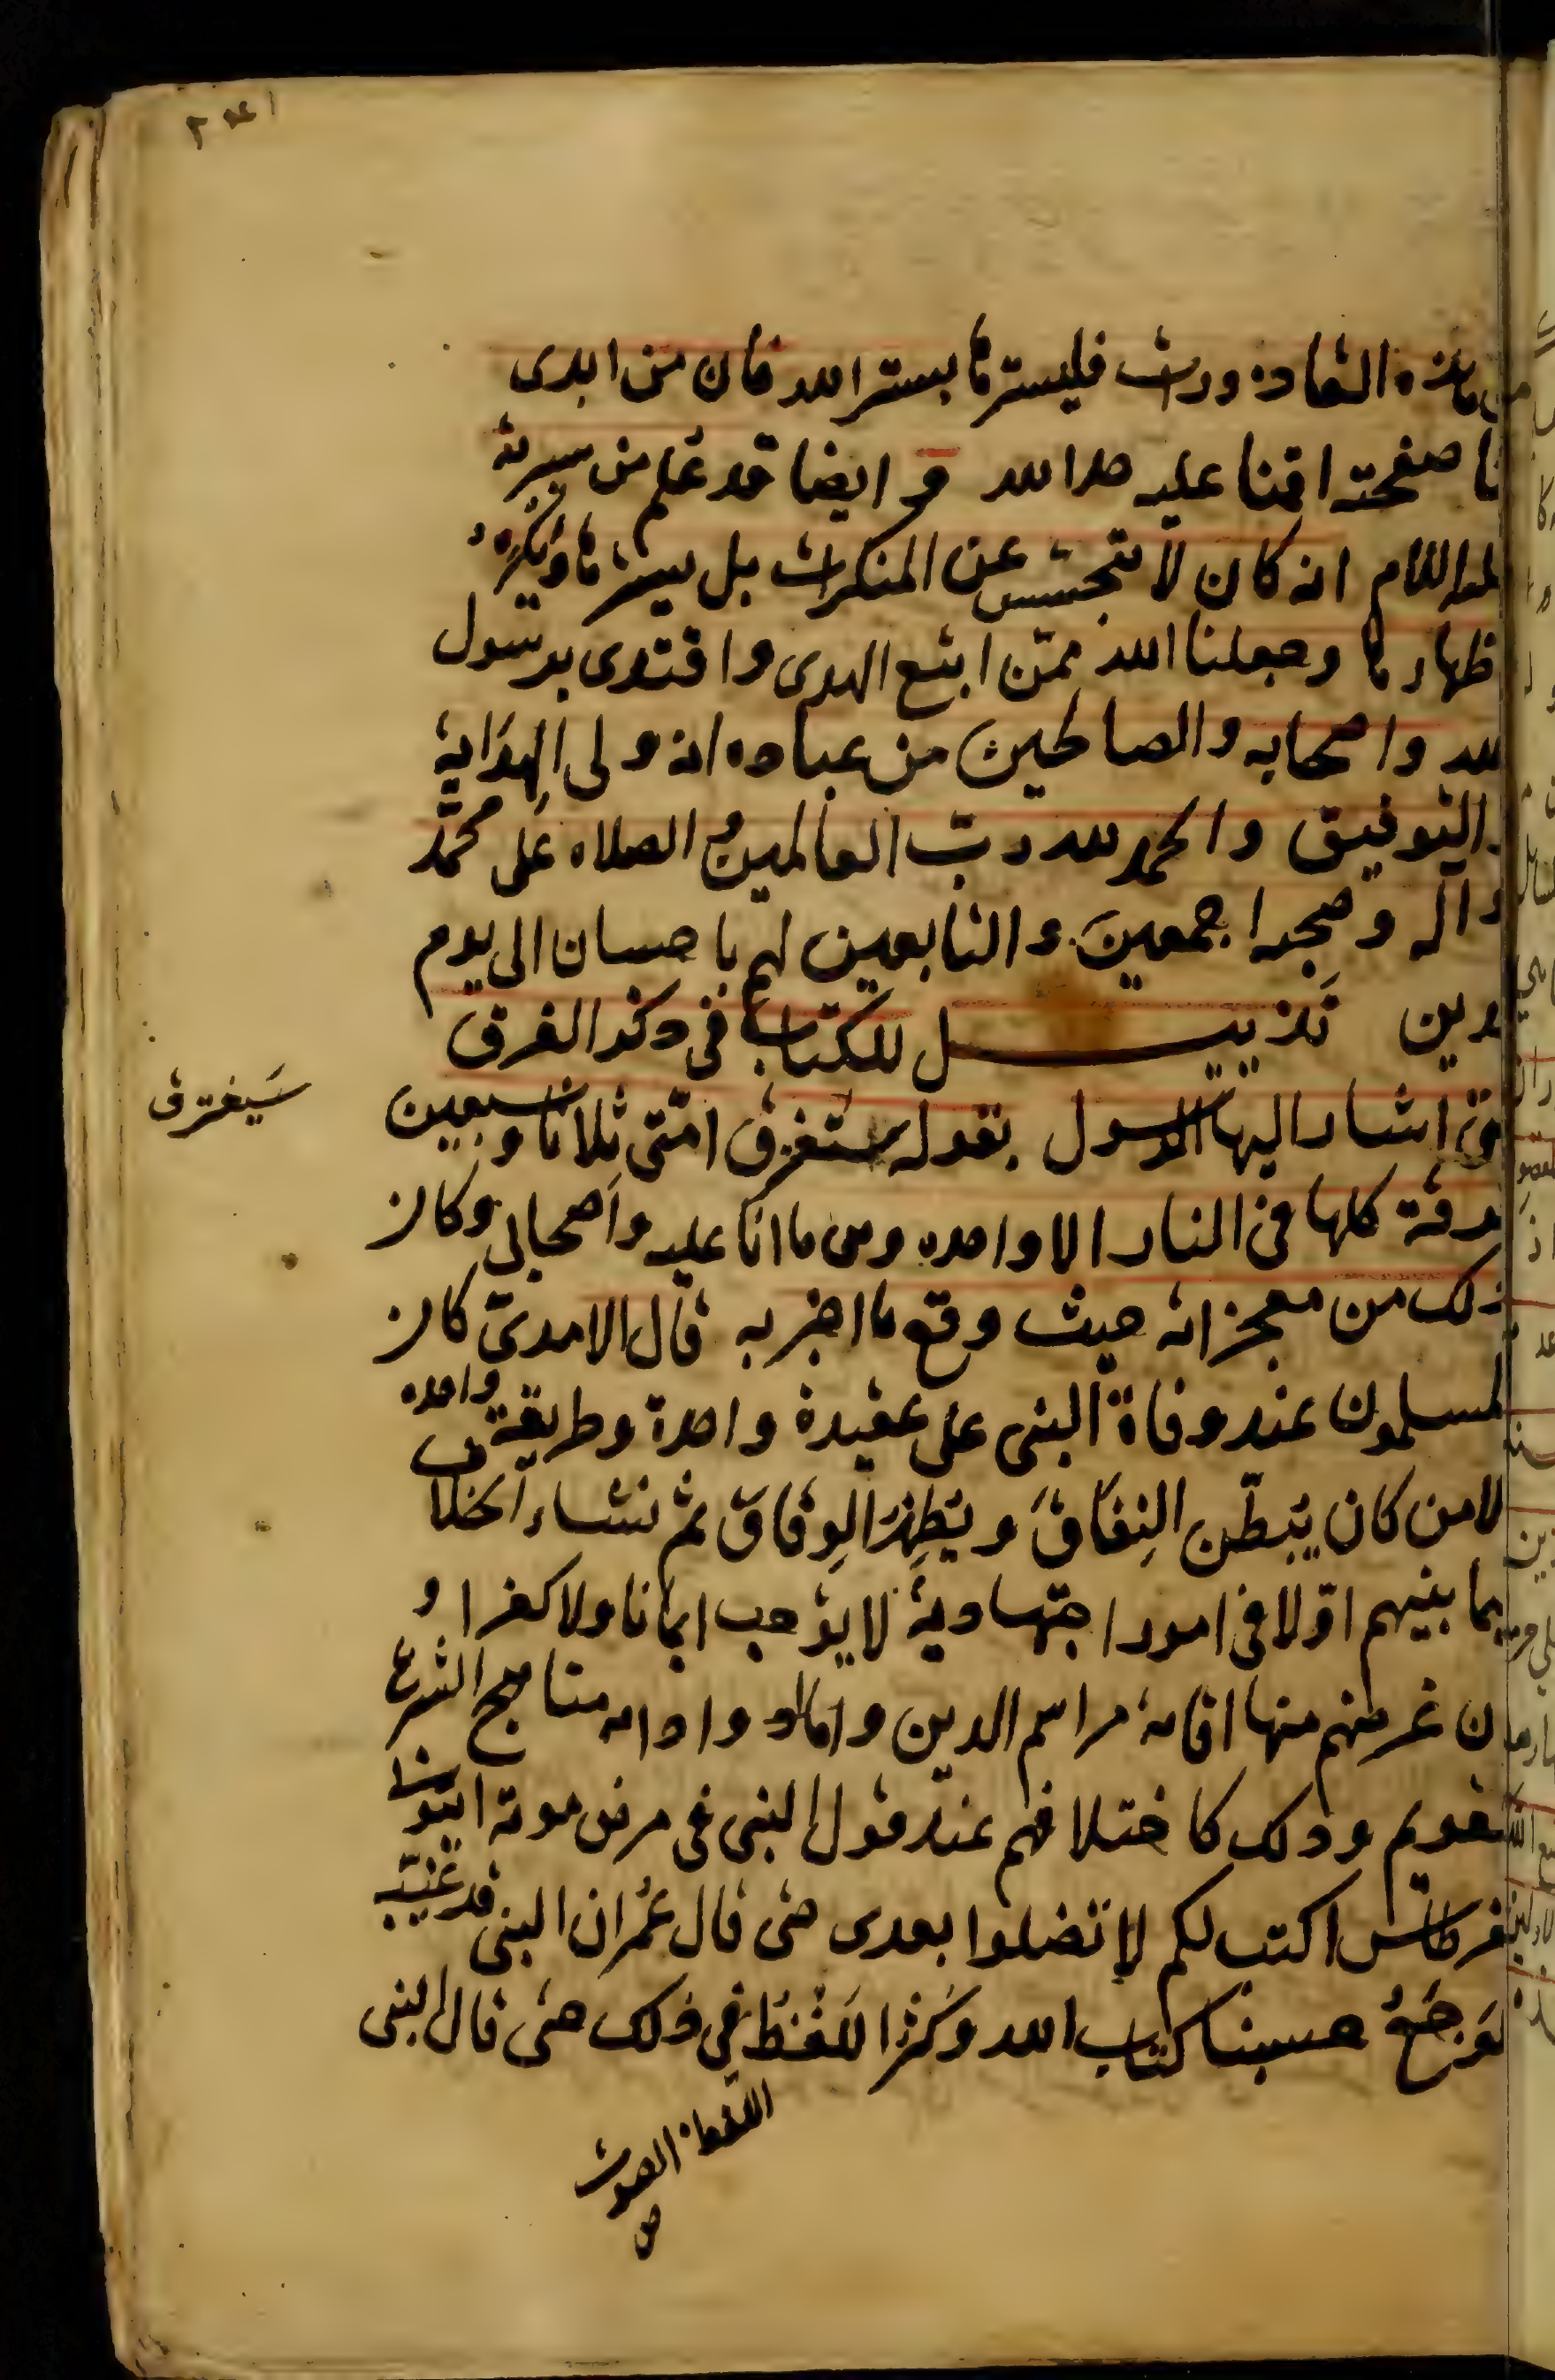 هذه القاذورات فليسترها بستر الله فان من ابدى
صفحته اقمنا عليه حد الله و ايضا قد علم من سيرته
انه كان لا يتجسس عن المنكرات بل يسترها ويكره
ظهارها وجعلنا الله ممن اتبع الهدى واقتدى برسول
لله واصحابه والصالحين من عباده انه ولى الهداية
والتوفيق والحمد لله رب العالمين و الصلاه على محمد
واله وصحبه اجمعين والتابعين لهم باحسان الى يوم
لدين تذييل للكتاب فى ذكر الفرق
اشار اليها الرسول بقوله ستفترق امتى ثلاثا وسبعين
سيفترق
رقة كلها فى النار الا واحده وهى ما انا عليه واصحابى وكان
ذلك من معجزاته حيث وقع ما اخبر به قال الامدى كان
لمسلمون عند وفاة النبى على عقيدة واحدة وطريقة واحده
لا من كان يبطن النفاق ويظهر الوفاق ثم نشاء الخلاف
يما بينهم اولا فى امور اجتهادية لا يوجب ايمانا ولا كفرا و
ن غرضهم منها اقامة مراسم الدين وادامه مناهج الشرع
لقويم وذلك كاختلافهم عند قول النبى فى مرض موته ايتونى
قرطاس اكتب لكم لا تضلوا بعدى حتى قال عمر ان النبى قد غلبه
لوجع حسبنا كتاب الله وكثر اللغط فى ذلك حتى قال النبى
اللغط الصوت
ص